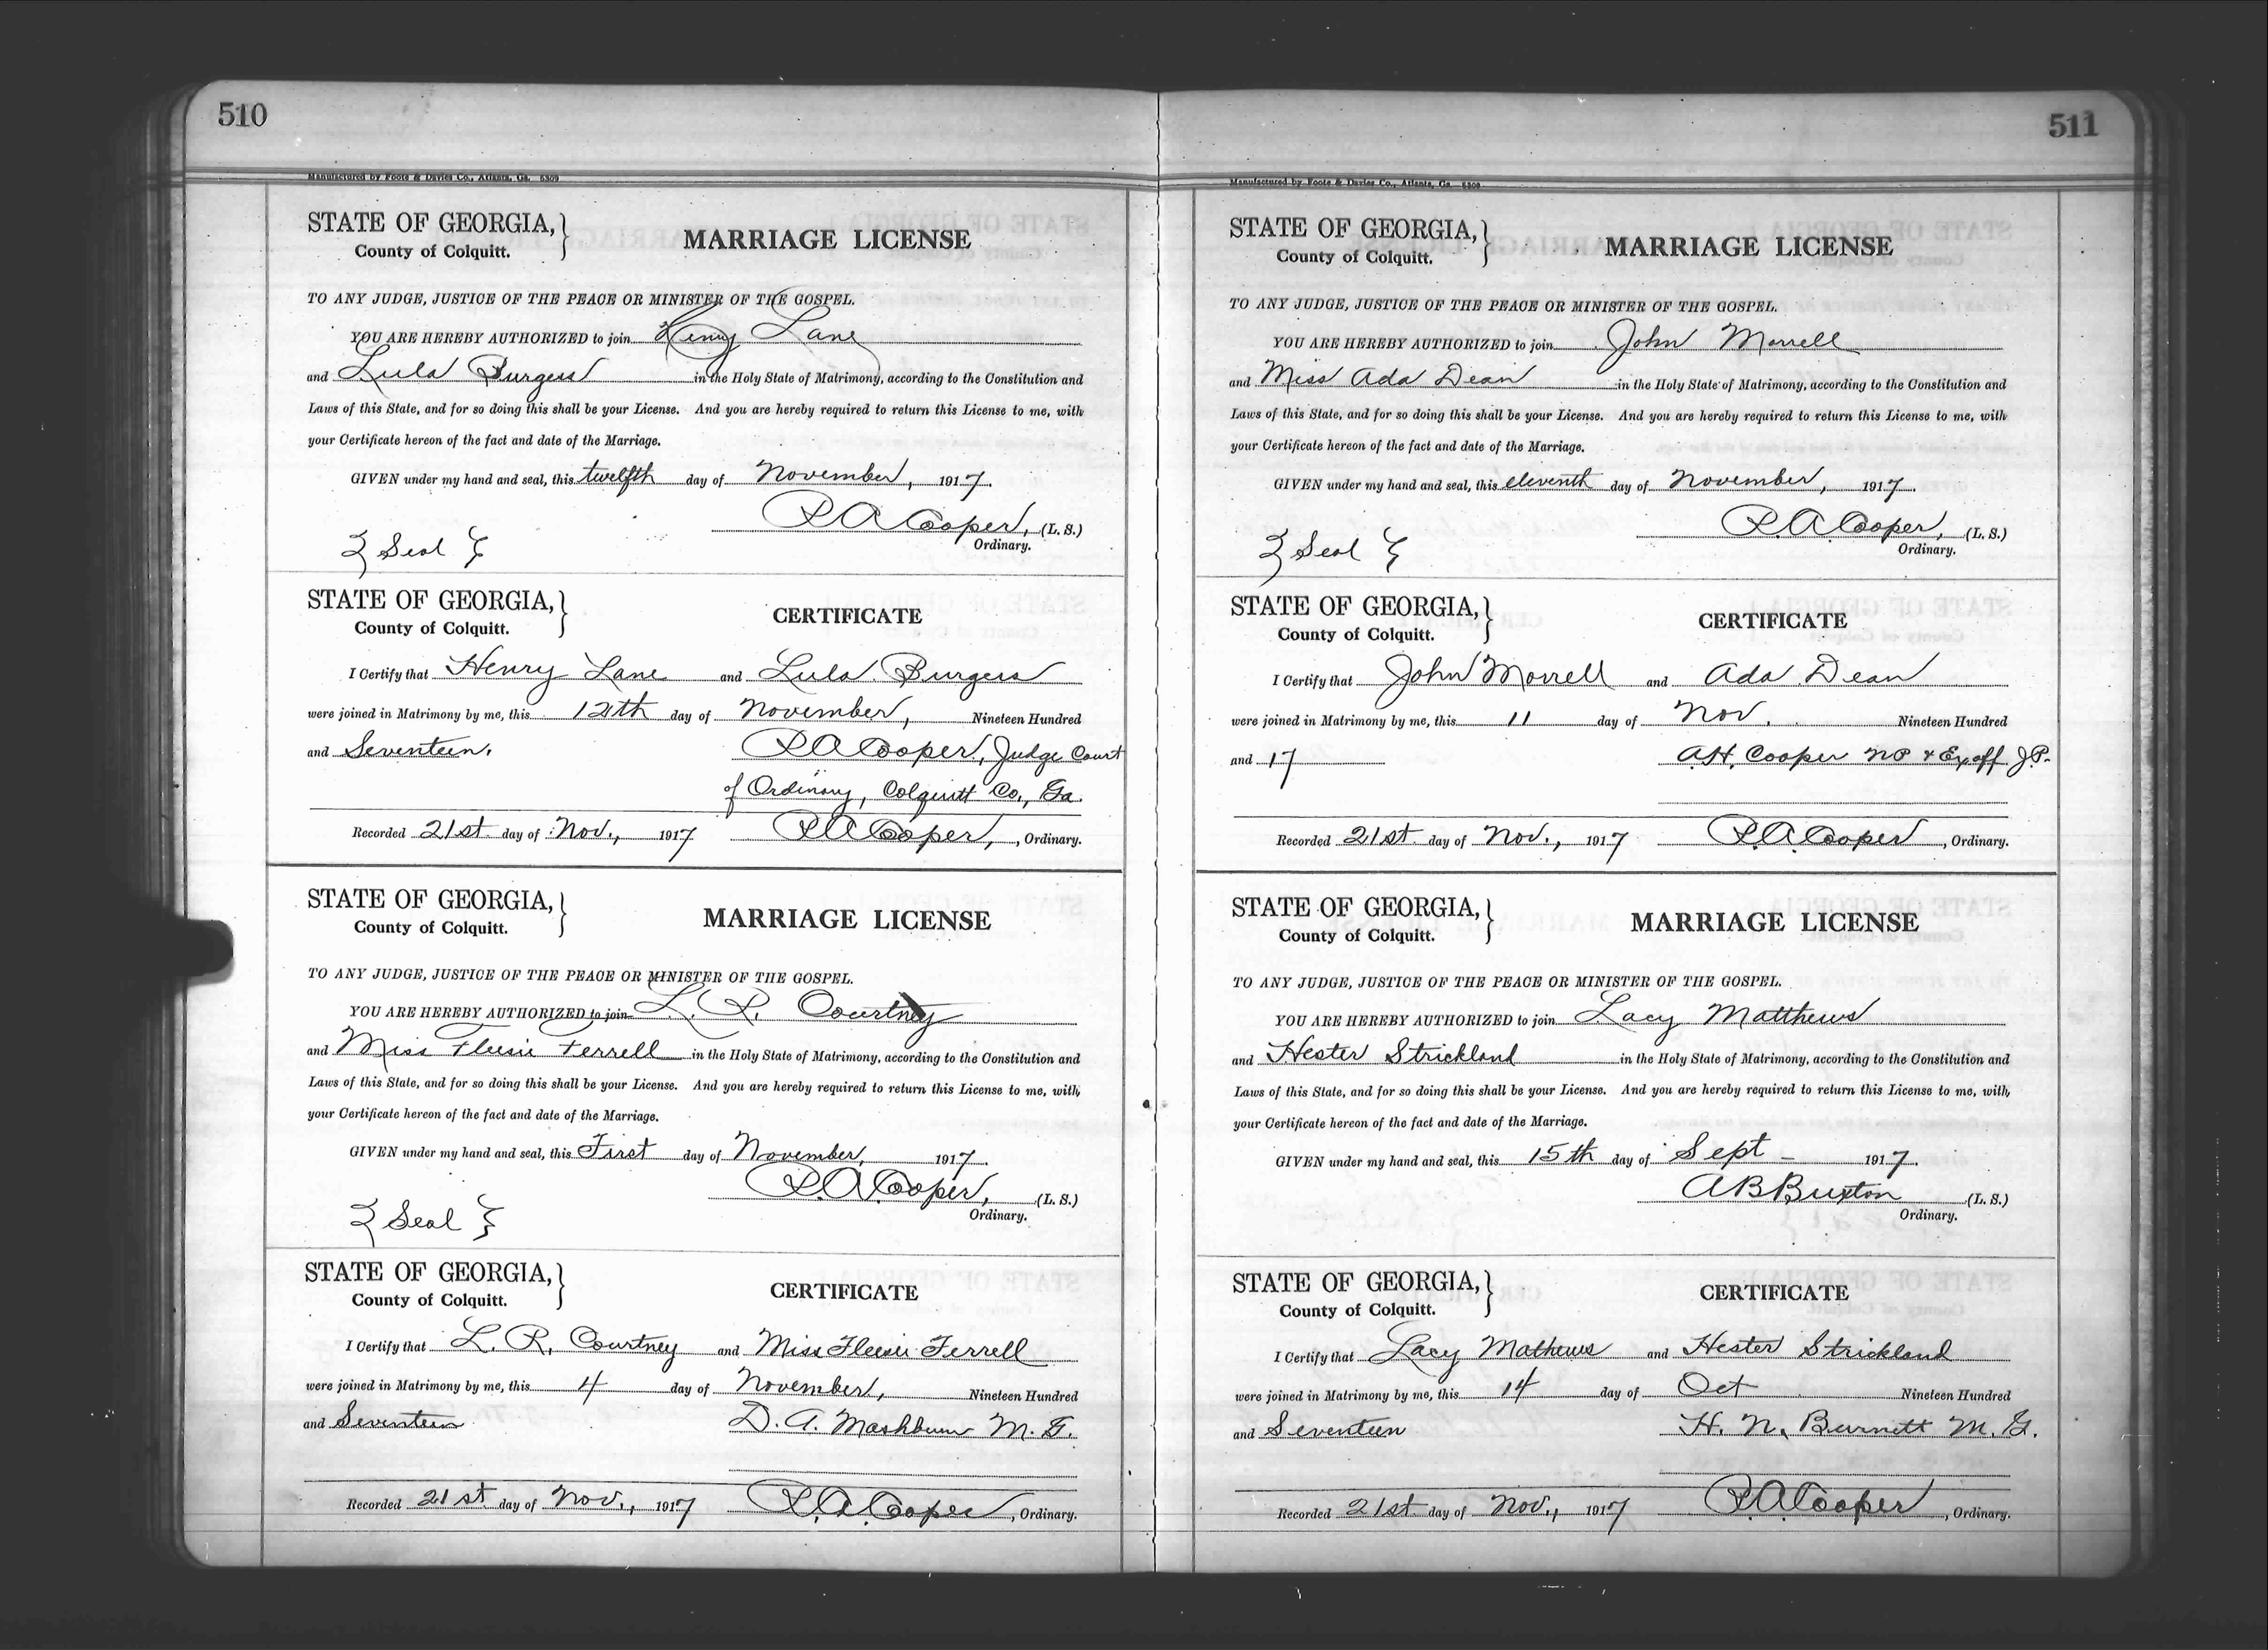 510
Manufactured by Foote & Davies Co., Atlanta, Ga. 5309
STATE OF GEORGIA,
County of Colquitt.
MARRIAGE LICENSE
TO ANY JUDGE, JUSTICE OF THE PEACE OR MINISTER OF THE GOSPEL.
YOU ARE HEREBY AUTHORIZED to join Henry Lane
and Lula Burgess in the Holy State of Matrimony, according to the Constitution and
Laws of this State, and for so doing this shall be your License. And you are hereby required to return this License to me, with
your Certificate hereon of the fact and date of the Marriage.
GIVEN under my hand and seal, this twelfth day of November, 1917.
P.A. Cooper, (L. S.)
Ordinary.
{ Seal }
STATE OF GEORGIA,
County of Colquitt.
CERTIFICATE
I Certify that Henry Lane and Lula Burgess
were joined in Matrimony by me, this 12th day of November, Nineteen Hundred
and Seventeen. P.A. Cooper, Judge Court
of Ordinary, Colquitt Co., Ga.
Recorded 21st day of Nov., 1917 P.A. Cooper, Ordinary.
STATE OF GEORGIA,
County of Colquitt.
MARRIAGE LICENSE
TO ANY JUDGE, JUSTICE OF THE PEACE OR MINISTER OF THE GOSPEL.
YOU ARE HEREBY AUTHORIZED to join L. R. Courtney
and Miss Ferrell in the Holy State of Matrimony, according to the Constitution and
Laws of this State, and for so doing this shall be your License. And you are hereby required to return this License to me, with
your Certificate hereon of the fact and date of the Marriage.
GIVEN under my hand and seal, this First day of November, 1917.
P.A. Cooper, (L. S.)
Ordinary.
{ Seal }
STATE OF GEORGIA,
County of Colquitt.
CERTIFICATE
I Certify that L. R. Courtney and Miss Ferrell
were joined in Matrimony by me, this 4 day of November, Nineteen Hundred
and Seventeen D. A. Mashburn M. G.
Recorded 21st day of Nov., 1917 P.A. Cooper, Ordinary.
511
Manufactured by Foote & Davies Co., Atlanta, Ga. 5309
STATE OF GEORGIA,
County of Colquitt.
MARRIAGE LICENSE
TO ANY JUDGE, JUSTICE OF THE PEACE OR MINISTER OF THE GOSPEL.
YOU ARE HEREBY AUTHORIZED to join John Morrell
and Miss Ada Dean in the Holy State of Matrimony, according to the Constitution and
Laws of this State, and for so doing this shall be your License. And you are hereby required to return this License to me, with
your Certificate hereon of the fact and date of the Marriage.
GIVEN under my hand and seal, this eleventh day of November, 1917.
P.A. Cooper, (L. S.)
Ordinary.
{ Seal }
STATE OF GEORGIA,
County of Colquitt.
CERTIFICATE
I Certify that John Morrell and Ada Dean
were joined in Matrimony by me, this 11 day of Nov. Nineteen Hundred
and 17 A.H. Cooper NP & Ex off J.P.
Recorded 21st day of Nov., 1917 P.A. Cooper, Ordinary.
STATE OF GEORGIA,
County of Colquitt.
MARRIAGE LICENSE
TO ANY JUDGE, JUSTICE OF THE PEACE OR MINISTER OF THE GOSPEL.
YOU ARE HEREBY AUTHORIZED to join Lacy Matthews
and Hester Strickland in the Holy State of Matrimony, according to the Constitution and
Laws of this State, and for so doing this shall be your License. And you are hereby required to return this License to me, with
your Certificate hereon of the fact and date of the Marriage.
GIVEN under my hand and seal, this 15th day of Sept - 1917.
A B Buxton (L. S.)
Ordinary.
STATE OF GEORGIA,
County of Colquitt.
CERTIFICATE
I Certify that Lacy Mathews and Hester Strickland
were joined in Matrimony by me, this 14 day of Oct Nineteen Hundred
and Seventeen H. N. Burnett M. G.
Recorded 21st day of Nov., 1917 P.A. Cooper, Ordinary.